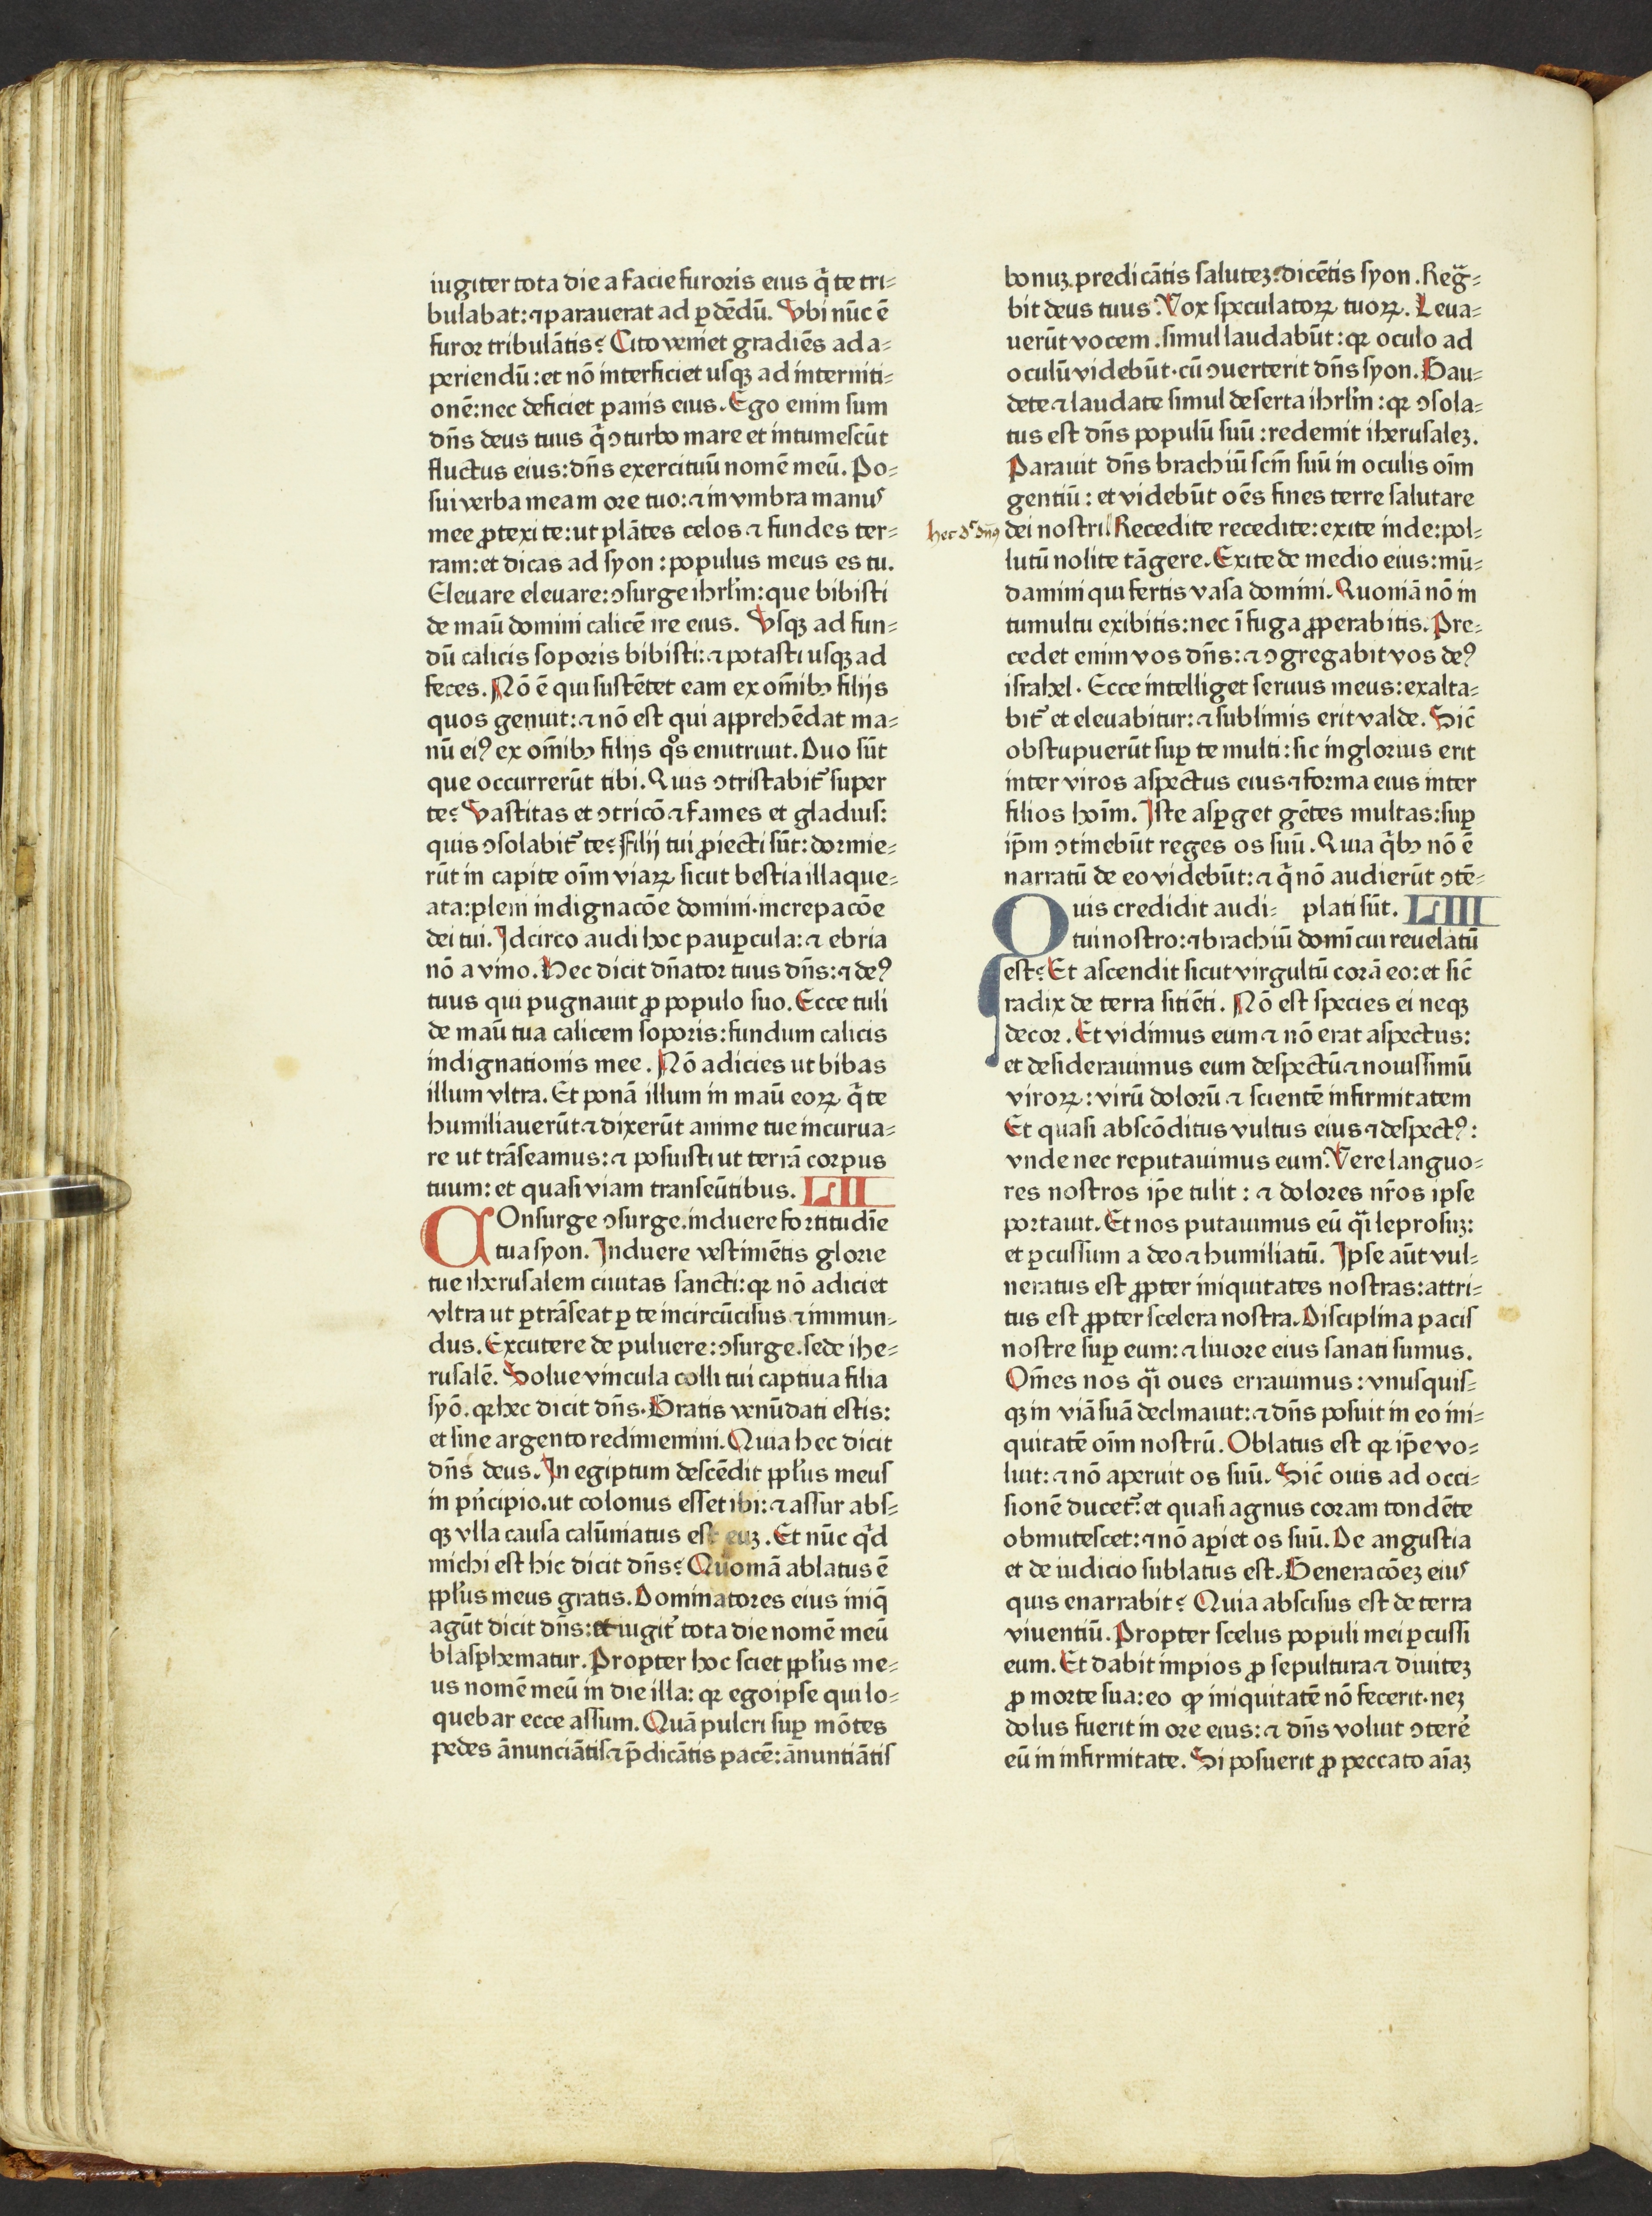 iugiter tota die a facie furoris eius q̄ te tri⸗
bulabat: ⁊ parauerat ad ꝑdēdū. Vbi nūc ē
furor tribulātis? Cito veniet gradiēs ad a⸗
periendū: et nō interficiet usqꝫ ad interniti⸗
onē: nec deficiet panis eius. Ego enim sum
dn̄s deus tuus q̄ ꝯturbo mare et intumescūt
fluctus eius: dn̄s exercituū nomē meū. Po⸗
sui verba mea in ore tuo: ⁊ in vmbra manus
mee ꝓtexi te: ut plātes celos ⁊ fundes ter⸗
ram: et dicas ad syon: populus meus es tu.
Eleuare eleuare: ꝯsurge ihrl̄m: que bibisti
de maū domini calicē ire eius. Vsqꝫ ad fun⸗
dū calicis soporis bibisti: ⁊ potasti usqꝫ ad
feces. Nō ē qui sustētet eam ex om̄ibꝫ filijs
quos genuit: ⁊ nō est qui apprehēdat ma⸗
nū eiꝰ ex om̄ibꝫ filijs qͦs enutriuit. Duo sūt
que occurrerūt tibi. Quis ꝯtristabit᷑ super
te? Vastitas et ꝯtricō ⁊ fames et gladius:
quis ꝯsolabit᷑ te? Filij tui ꝓiecti sūt: dormie⸗
rūt in capite oīm viaꝝ sicut bestia illaque⸗
ata: pleni indignacōe domini. increpacōe
dei tui. Idcirco audi hoc pauꝑcula: ⁊ ebria
nō a vino. Hec dicit dn̄ator tuus dn̄s: ⁊ deꝰ
tuus qui pugnauit ꝓ populo suo. Ecce tuli
de maū tua calicem soporis: fundum calicis
indignationis mee. Nō adicies ut bibas
illum vltra. Et ponā illum in maū eoꝝ q̄ te
humiliauerūt ⁊ dixerūt anime tue incurua⸗
re ut trāseamus: ⁊ posuisti ut terrā corpus
tuum: et quasi viam transeūtibus. LII
COnsurge ꝯsurge. induere fortitudīe
tua syon. Induere vestimētis glorie
tue iherusalem ciuitas sancti: qꝛ nō adiciet
vltra ut ꝑtrāseat ꝑ te incircūcisus ⁊ immun⸗
dus. Excutere de puluere: ꝯsurge. sede ihe⸗
rusalē. Solue vincula colli tui captiua filia
syō. qꝛ hec dicit dn̄s. Gratis venūdati estis:
et sine argento redimemini. Quia hec dicit
dn̄s deus. In egiptum descēdit ppl̄us meus
in pͥncipio. ut colonus esset ibi: ⁊ assur abs⸗
qꝫ vlla causa calūniatus est euꝫ. Et nūc qͥd
michi est hic dicit dn̄s? Quoniā ablatus ē
ppl̄us meus gratis. Dominatores eius iniq̄
agūt dicit dn̄s: et iugit᷑ tota die nomē meū
blasphematur. Propter hoc sciet ppl̄us me⸗
us nomē meū in die illa: qꝛ ego ipse qui lo⸗
quebar ecce assum. Quā pulcri suꝑ mōtes
pedes ānunciātis ⁊ p̄dicātis pacē: ānuntiātis
bonuꝫ. predicātis saluteꝫ. dicētis syon. Regᷓ⸗
bit deus tuus. Vox speculatoꝝ tuoꝝ. Leua⸗
uerūt vocem. simul laudabūt: qꝛ oculo ad
oculū videbūt. cū ꝯuerterit dn̄s syon. Gau⸗
dete ⁊ laudate simul deserta ihrl̄m: qꝛ ꝯsola⸗
tus est dn̄s populū suū: redemit iherusaleꝫ.
Parauit dn̄s brachiū scm̄ suū in oculis oīm
gentiū: et videbūt oēs fines terre salutare
hec d᷑ dn̄s
dei nostri. Recedite recedite: exite inde: pol⸗
lutū nolite tāgere. Exite de medio eius: mū⸗
damini qui fertis vasa domini. Quoniā nō in
tumultu exibitis: nec ī fuga ꝓperabitis. Pre⸗
cedet enim vos dn̄s: ⁊ ꝯgregabit vos deꝰ
israhel. Ecce intelliget seruus meus: exalta⸗
bit᷑ et eleuabitur: ⁊ sublimis erit valde. Sic̄
obstupuerūt suꝑ te multi: sic inglorius erit
inter viros aspectus eius ⁊ forma eius inter
filios hoīm. Iste asꝑget gētes multas: suꝑ
ip̄m ꝯtinebūt reges os suū. Quia qͥbꝫ nō ē
narratū de eo videbūt: ⁊ q̄ nō audierūt ꝯtē⸗
Quis credidit audi⸗ plati sūt. LIII
tui nostro: ⁊ brachiū domī cui reuelatū
est? Et ascendit sicut virgultū corā eo: et sic̄
radix de terra sitiēti. Nō est species ei neqꝫ
decor. Et vidimus eum ⁊ nō erat aspectus:
et desiderauimus eum despectū ⁊ nouissimū
viroꝝ: virū dolorū ⁊ scientē infirmitatem
Et quasi abscōditus vultus eius ⁊ despectꝰ:
vnde nec reputauimus eum. Vere languo⸗
res nostros ip̄e tulit: ⁊ dolores nr̄os ipse
portauit. Et nos putauimus eū qᷓi leprosuꝫ:
et ꝑcussum a deo ⁊ humiliatū. Ipse aūt vul⸗
neratus est ꝓpter iniquitates nostras: attri⸗
tus est ꝓpter scelera nostra. Disciplina pacis
nostre suꝑ eum: ⁊ liuore eius sanati sumus.
Om̄es nos qᷓi oues errauimus: vnusquis⸗
qꝫ in viā suā declinauit: ⁊ dn̄s posuit in eo ini⸗
quitatē oīm nostrū. Oblatus est qꝛ ip̄e vo⸗
luit: ⁊ nō aperuit os suū. Sic̄ ouis ad occi⸗
sionē ducet᷑: et quasi agnus coram tondēte
obmutescet: ⁊ nō aꝑiet os suū. De angustia
et de iudicio sublatus est. Generacōeꝫ eius
quis enarrabit? Quia abscisus est de terra
viuentiū. Propter scelus populi mei ꝑcussi
eum. Et dabit impios ꝓ sepultura ⁊ diuiteꝫ
ꝓ morte sua: eo ꝙ iniquitatē nō fecerit. neꝫ
dolus fuerit in ore eius: ⁊ dn̄s voluit ꝯterē
eū in infirmitate. Si posuerit ꝓ peccato aīaꝫ